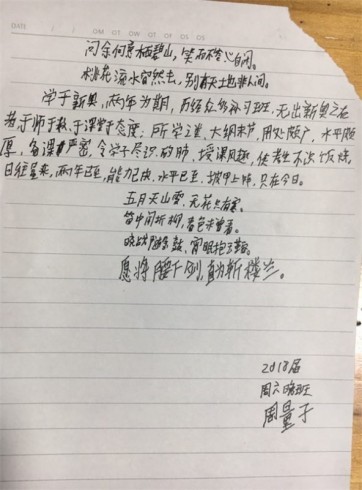 DATE
问余何意栖碧山，笑而不答心自闲。
桃花流水窅然去，别有天地非人间。
学于新奥，两年为期，历经众多补习班，无出新奥之右
者，于师于教，于课堂于态度；所学之道，大纲末节，用处颇广，水平颇
厚，备课严密，令学子尽识，授课风趣，使考生不
日往星来，两年已至，能力已成，水平已至，披甲上阵，只在今日。
五月天山雪，无花只有寒。
笛中闻折柳，春色未曾看。
晓战随金鼓，宵眠抱玉鞍。
愿将腰下剑，直为斩楼兰。
2018届
周六晚班
周量子